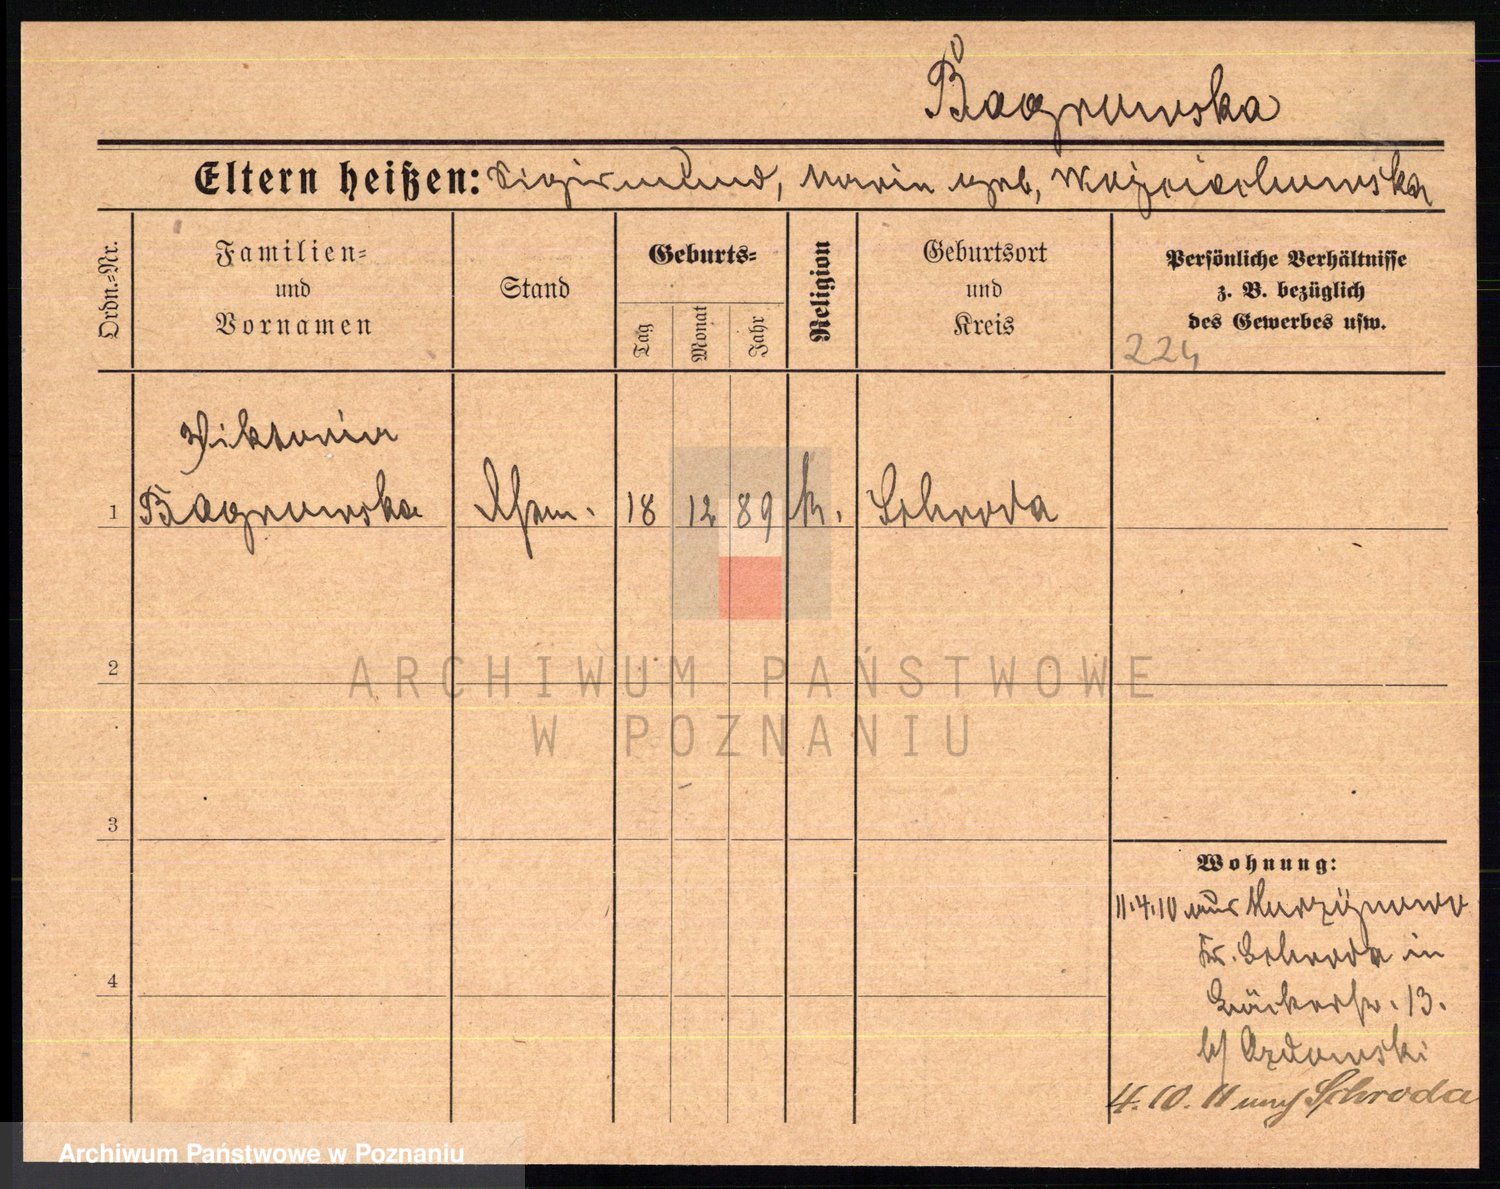 Bagrowska
Eltern heißen: Sigismund, Maria geb. Wojciechowska
Ordn.-Nr.
Familien-
und
Vornamen
Stand
Geburts-
Tag
Monat
Jahr
Religion
Geburtsort
und
Kreis
Persönliche Verhältnisse
z. B. bezüglich
des Gewerbes usw.
224
Viktoria
1 Bagrowska 18 12 89 k. Schroda
2
3
4
ARCHIWUM PAŃSTWOWE
W POZNANIU
Wohnung:
11.4.10 aus
Kr. Schroda in
Bäckerstr. 13.
b/
4.10.11 nach Schroda
Archiwum Państwowe w Poznaniu